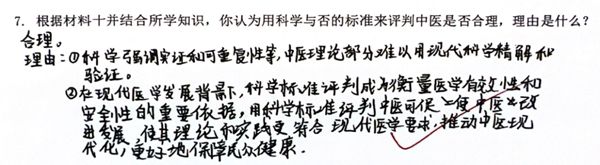 7. 根据材料十并结合所学知识，你认为用科学与否的标准来评判中医是否合理，理由是什么？
合理。
理由：①科学强调实证和可重复性等，中医理论部分难以用现代科学精解和
验证。
②在现代医学发展背景下，科学标准评判成为衡量医学有效性和
安全性的重要依据，用科学标准评判中医可促使中医改
进发展，使其理论和实践更符合现代医学要求，推动中医现
代化，更好地保障民众健康.